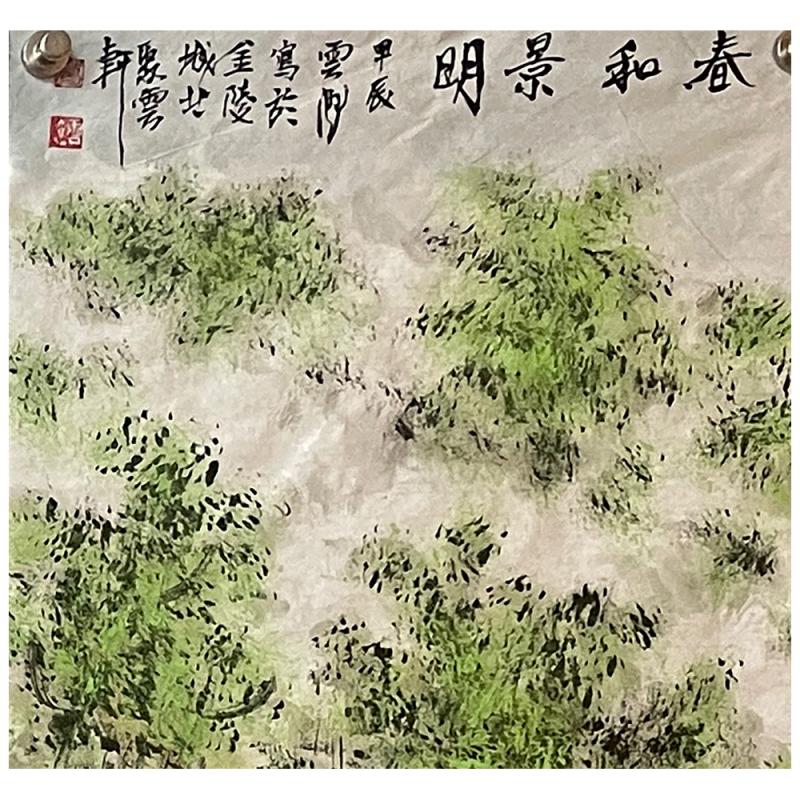 春和景明
甲辰
雲
寫於
金陵
城北
聚雲
軒